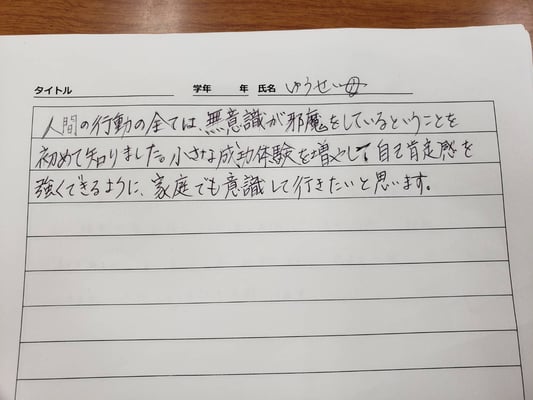 タイトル 学年 年 氏名 ゆうせい母
人間の行動の全ては、無意識が邪魔をしているということを
初めて知りました。小さな成功体験を増やして自己肯定感を
強くできるように、家庭でも意識して行きたいと思います。